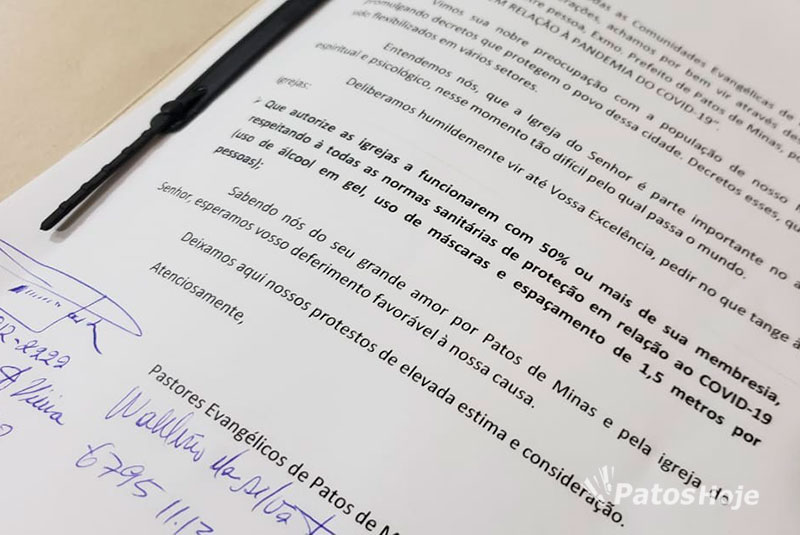 as Comunidades Evangélicas de
rações, achamos por bem vir através des
tre pessoa, Exmo. Prefeito de Patos de Minas, po
EM RELAÇÃO À PANDEMIA DO COVID-19".
Vimos sua nobre preocupação com a população de nosso
promulgando decretos que protegem o povo dessa cidade. Decretos esses, qu
sido flexibilizados em vários setores.
Entendemos nós, que a Igreja do Senhor é parte importante no a
espiritual e psicológico, nesse momento tão difícil pelo qual passa o mundo.
Deliberamos humildemente vir até Vossa Excelência, pedir no que tange à
igrejas:
Que autorize as igrejas a funcionarem com 50% ou mais de sua membresia,
respeitando à todas as normas sanitárias de proteção em relação ao COVID-19
(uso de álcool em gel, uso de máscaras e espaçamento de 1,5 metros por
pessoas);
Sabendo nós do seu grande amor por Patos de Minas e pela igreja do
Senhor, esperamos vosso deferimento favorável à nossa causa.
Deixamos aqui nossos protestos de elevada estima e consideração.
Atenciosamente,
Pastores Evangélicos de Patos de M
da silva
6795 11.12
2222
Vieira
PatosHoje